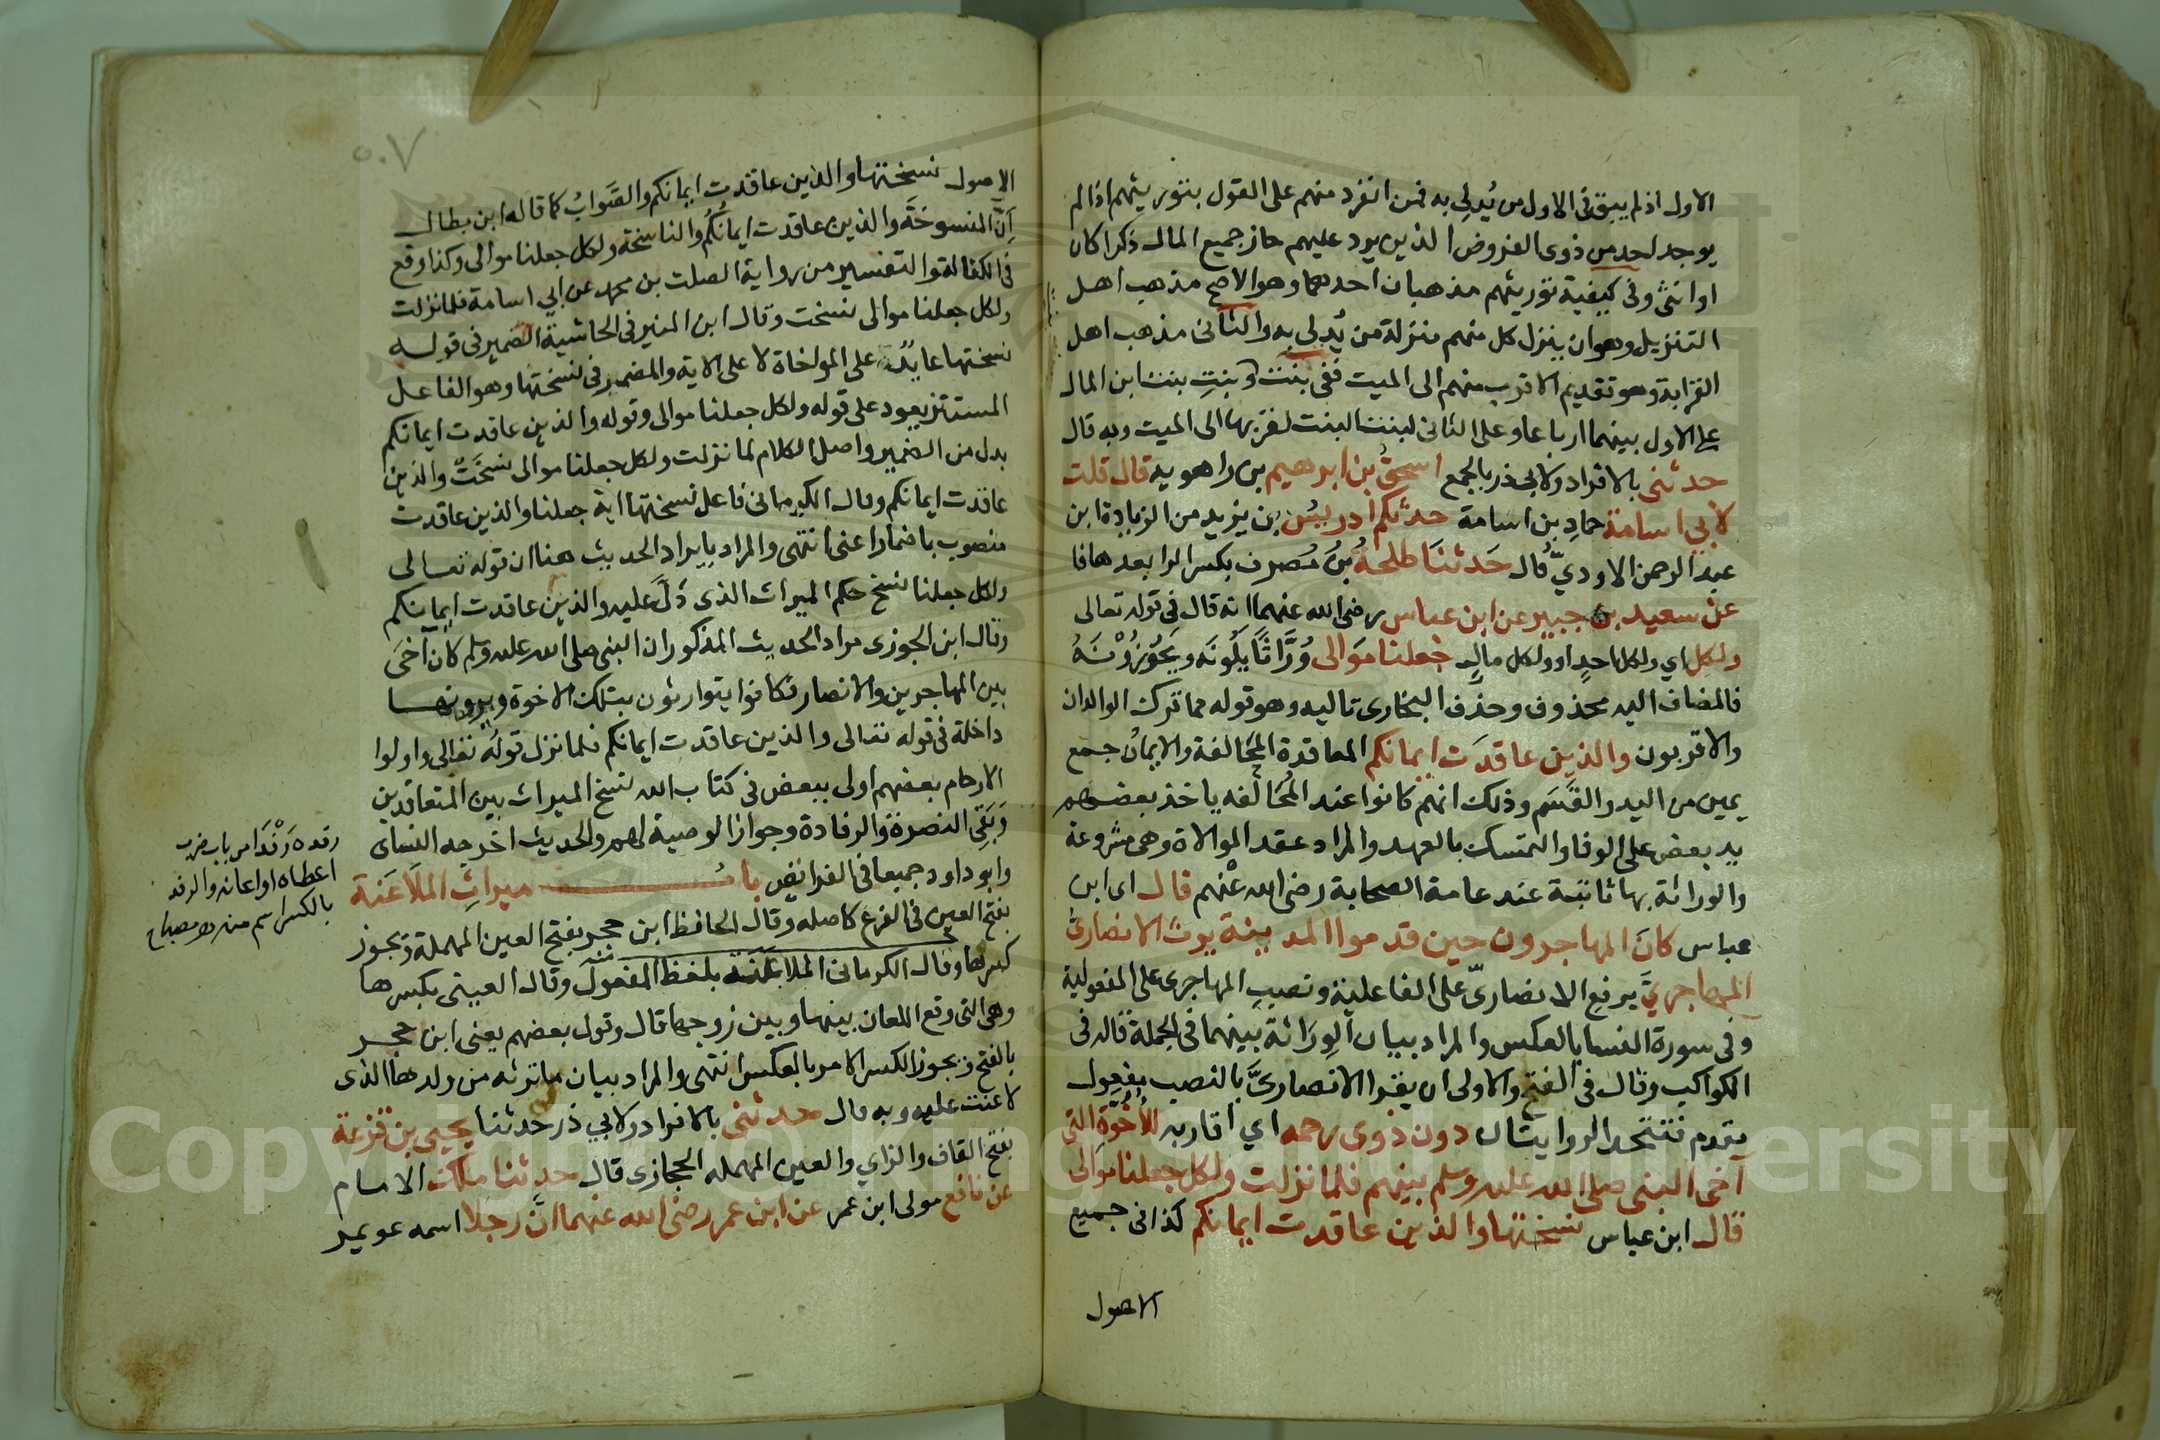 الاول اذ لم يبق في الاول من يُدلي به فمن انفرد منهم على القول بتوريثهم اذا لم
يوجد احد من ذوي الفروض الذين يرد عليهم حاز جميع المال ذكرا كان
او انثى وفي كيفية توريثهم مذهبان احدهما وهو الاصح مذهب اهل
التنزيل وهو ان ينزل كل منهم منزلة من يُدلي به والثاني مذهب اهل
القرابة وهو تقديم الاقرب منهم الى الميت ففي بنت بنت وبنت بنت ابن المال
على الاول بينهما ارباعا وعلى الثاني لبنت البنت لقربها الى الميت وبه قال
حدثني بالافراد ولابي ذر بالجمع اسحقُ بن ابرهيم بن راهويه قال قلت
لابي اسامة حمادِ بن اسامة حدثكم ادريسُ بن يزيد من الزيادة ابن
عبد الرحمن الاوديّ قال حَدثنَا طلحةُ بنُ مُصَرف بكسر الرا بعدها فا
عن سعيد بن جبير عن ابن عباس رضي الله عنهما انه قال في قوله تعالى
ولكل اي ولكل احدٍ او ولكل مالٍ جعلنا مَوالى وُرَّاثًا يَلُونَه ويَحُوزُوْنَهُ
فالمضاف اليه محذوف وحذف البخاري تاليه وهو قوله مما ترك الوالدان
والاقربون والذين عاقدَت ايمانكم المعاقدة المحَالفة والايمانُ جمع
يمين من اليد والقَسَم وذلك انهم كانوا عند المُحَالَفه ياخذ بعضهم
يد بعض على الوفا والتمسك بالعهد والمراد عقد الموالاة وهي مشروعة
والوراثة بها ثابتة عند عامة الصحابة رضي الله عنهم قال اي ابن
عباس كانَ المهاجرون حين قدموا المدينة يرث الانصاريُّ
المهاجريَّ برفع الانصاريّ على الفاعلية ونصب المهاجري على المفعولية
وفي سورة النسا بالعكس والمراد بيان الوِرَاثة بينهما في الجملة قاله في
الكواكب وقال في الفتح والاولى ان يقرا الانصاريَّ بالنصب مفعول
يقدم فتتحد الروايتان دون ذوي رحمه اي اقاربه للأُخُوَّةِ التي
آخى النبي صلى الله عليه وسلم بينهم فلما نزلت ولكل جعلنا موَالى
قال ابن عباس نسختها والذين عاقدت ايمانكم كذا في جميع
الاصول
٥٠٧
الاصول نسختها والذين عاقدت ايمانكم والصَّوابُ كما قاله ابن بطال
اَنّ المنسوخَة والذين عاقدت ايمانُكُم والناسخة ولكل جعلنا موالى وكذا وقع
في الكفالة والتفسير من رواية الصلت بن محمد عن ابي اسامة فلما نزلت
ولكل جعلنا موالى نسخت وقال ابن المنير في الحاشية الضمير في قوله
نسختها عايدٌ على المواخاة لا على الاية والمضمر في نسختها وهو الفاعل
المستتر يعود على قوله ولكل جعلنا موالى وقوله والذين عاقدت ايمانكم
بدل من الضمير واصل الكلام لما نزلت ولكل جعلنا موالى نسخَتْ والذين
عاقدت ايمانكم وقال الكرماني فاعل نسختها اية جعلنا والذين عاقدت
منصوب باضمار اعني انتهى والمراد بايراد الحديث هنا ان قوله تعالى
ولكل جعلنا نسخ حكم الميراث الذي دَلَّ عليه والذين عاقدت ايمانكم
وقال ابن الجوزي مراد الحديث المذكور ان النبي صلى الله عليه وسلم كان آخَى
بين المهاجرين والانصار فكانوا يتوارثون بتلك الاخوة ويرونها
داخلة في قوله تعالى والذين عاقدت ايمانكم فلما نزل قولُه تعالى واولوا
الارحام بعضهم اولى ببعض في كتاب الله نسخ الميراث بين المتعاقدين
وَبَقِيَ النصرة والرفادة وجواز الوصية لهم والحديث اخرجه النساي
وابو داود جميعا في الفرائض باب ميراثِ الملَاعَنة
بفتح العين في الفرع كاصله وقال الحافظ ابن حجر بفتح العين المهملة ويجوز
كسرها وقال الكرماني الملاعَنَة بلفظ المفعول وقال العيني بكسرها
وهي التي وقع اللعان بينها وبين زوجها قال وقول بعضهم يعني ابن حجر
بالفتح ويجوز الكسر الامر بالعكس انتهى والمراد بيان ما ترثه من ولدها الذي
لاعنت عليه وبه قال حدثني بالافراد ولابي ذر حدثنا يحيى بن قزعة
بفتح القاف والزاي والعين المهمله الحجازي قال حدثنا ملك الامام
عن نافع مولى ابن عمر عن ابن عمر رضي الله عنهما انَّ رجلا اسمه عويمر
رفده رَفْدًا من باب ضرب
اعطاه او اعانه والرفد
بالكسر اسم منه مصباح
Copyright © King Saud University